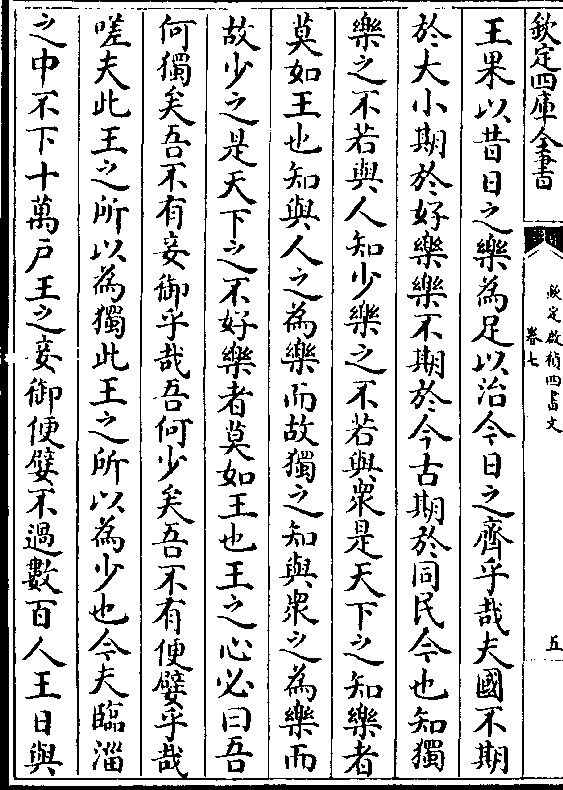 欽定四庫全書
欽定啟禎四書文
卷七
五
王果以昔日之樂為足以治今日之齊乎哉夫國不期
於大小期於好樂樂不期於今古期於同民今也知獨
樂之不若與人知少樂之不若與衆是天下之知樂者
莫如王也知與人之為樂而故獨之知與衆之為樂而
故少之是天下之不好樂者莫如王也王之心必曰吾
何獨矣吾不有妾御乎哉吾何少矣吾不有便嬖乎哉
嗟夫此王之所以為獨此王之所以為少也今夫臨淄
之中不下十萬戶王之妾御便嬖不過數百人王日與